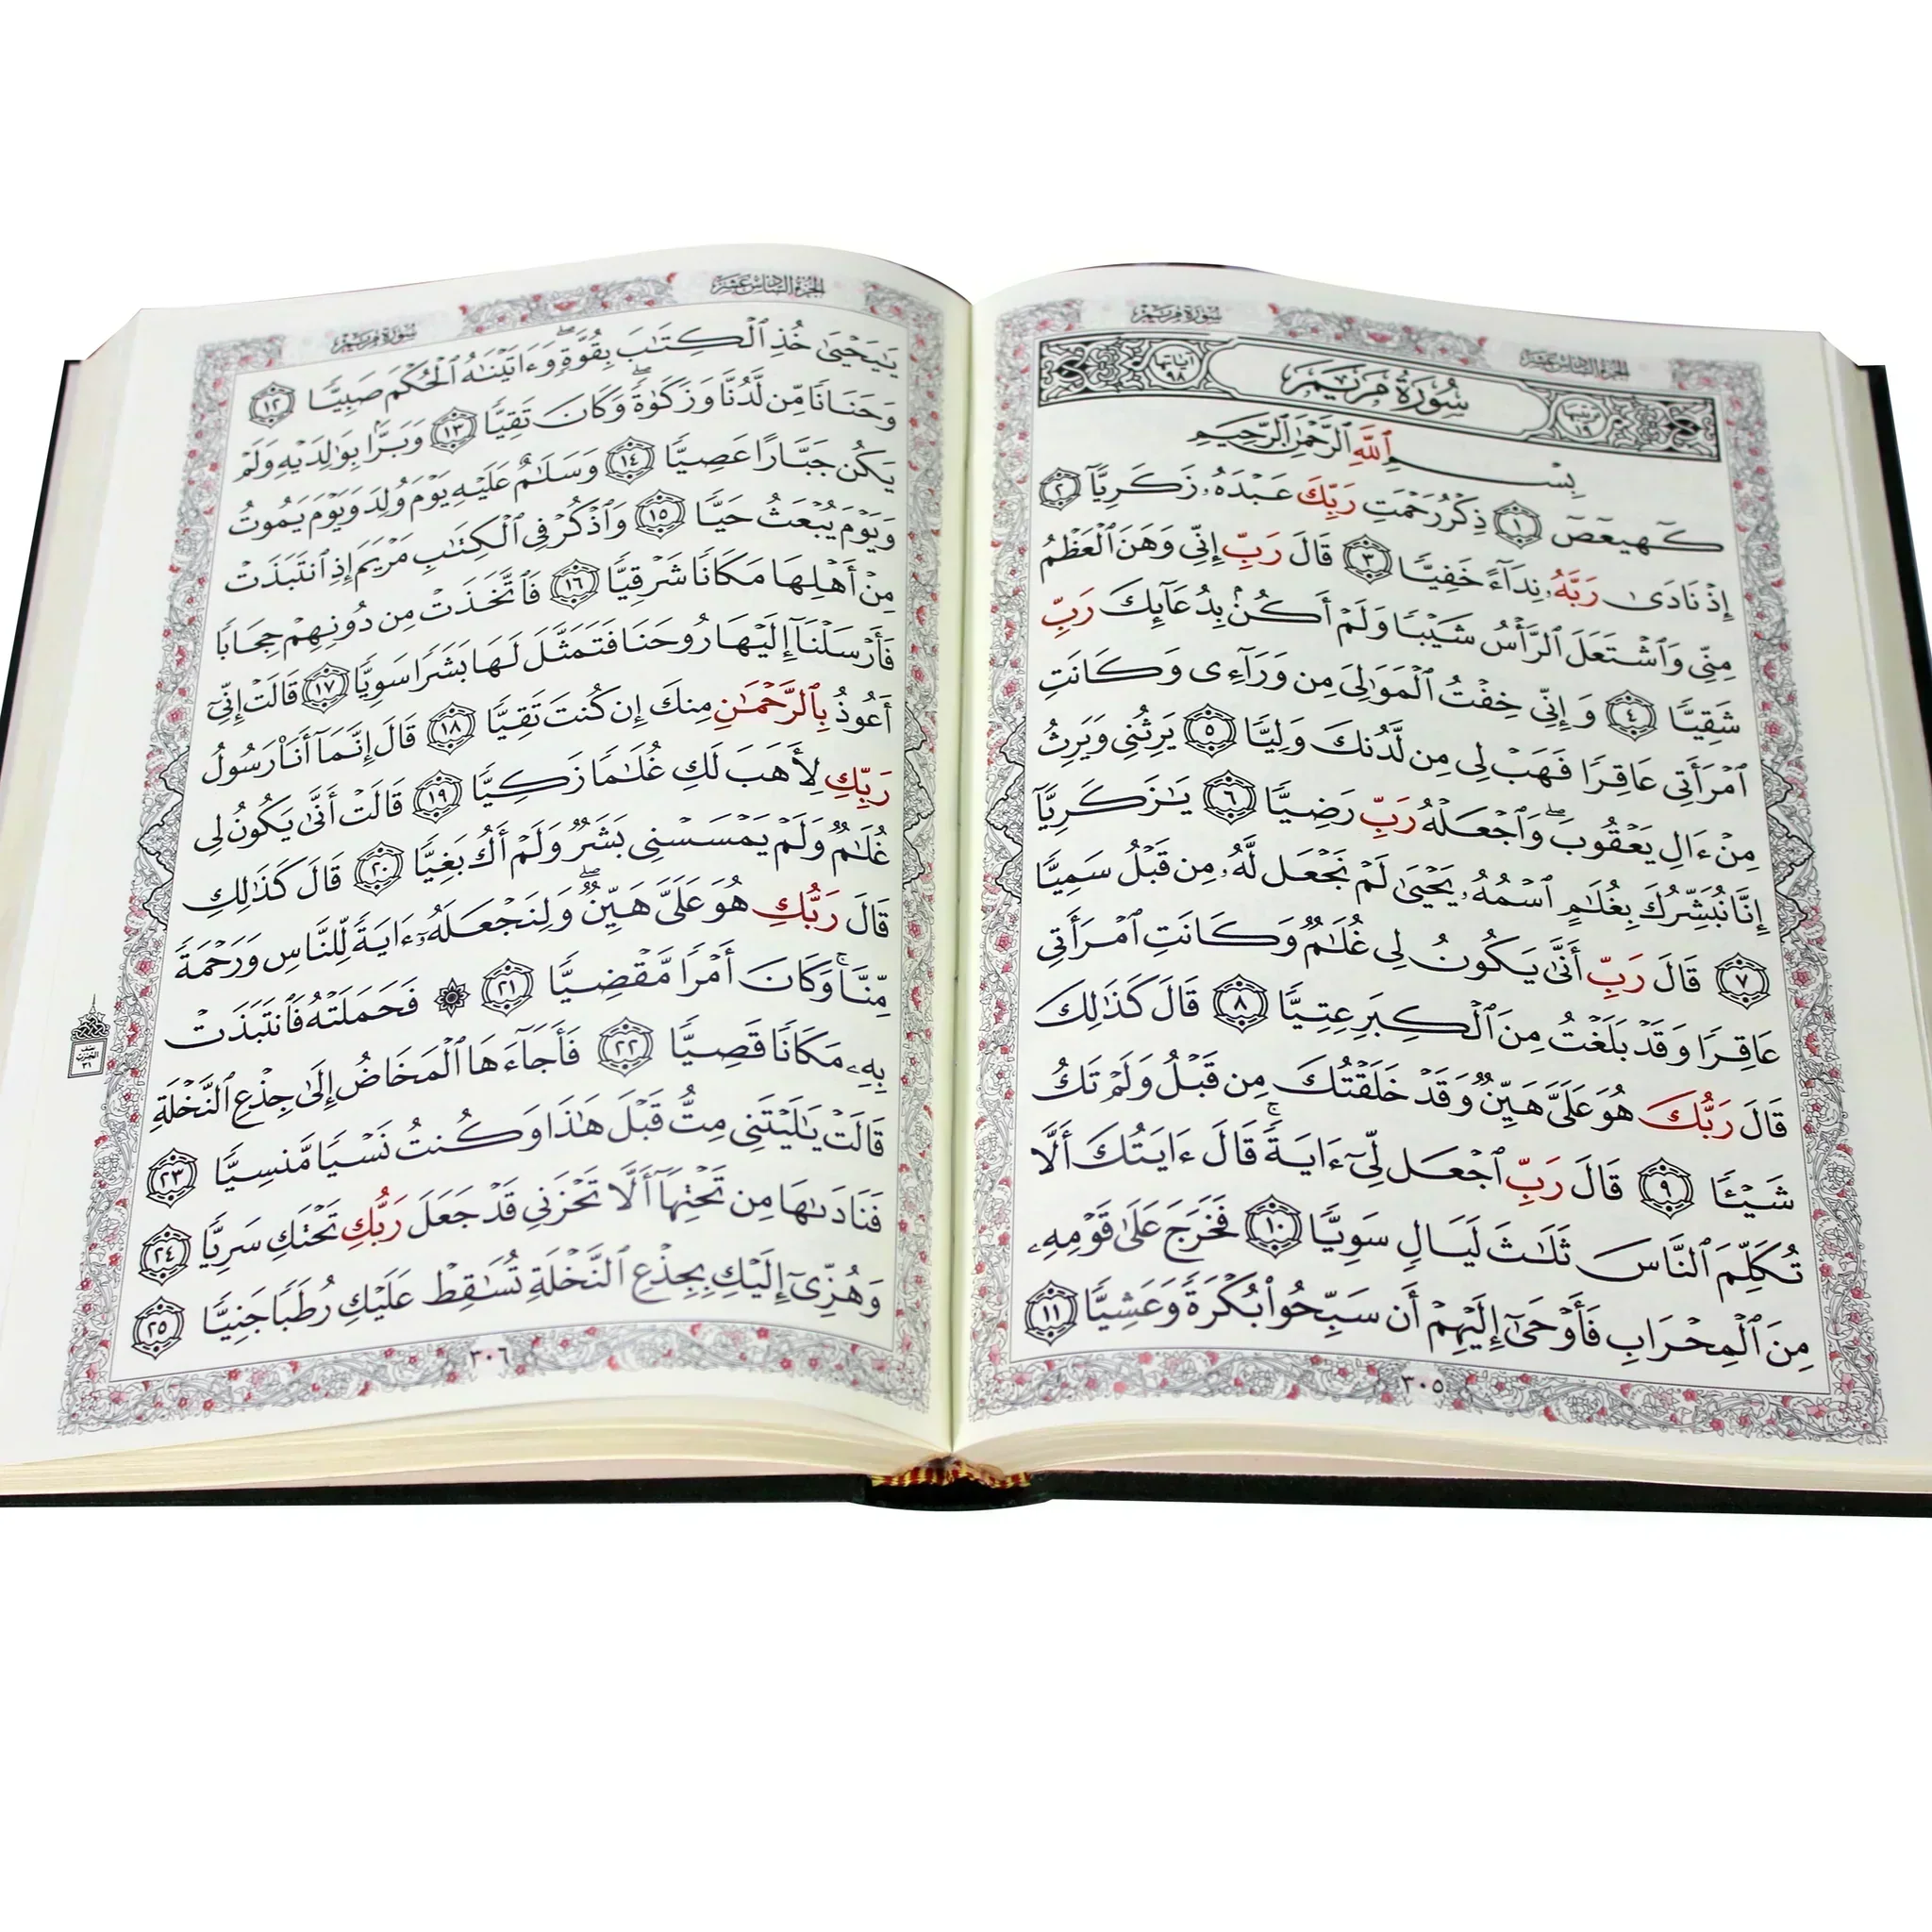 سُورَةُ مَرْيَمَ
الجُزْءُ السَّادِسَ عَشَرَ
آيَاتُهَا ٩٨
سُورَةُ مَرْيَمَ
تَرْتِيبُهَا ١٩
بِسْمِ ٱللَّهِ ٱلرَّحْمَٰنِ ٱلرَّحِيمِ
كٓهيعٓصٓ ١ ذِكْرُ رَحْمَتِ رَبِّكَ عَبْدَهُۥ زَكَرِيَّآ ٢
إِذْ نَادَىٰ رَبَّهُۥ نِدَآءً خَفِيًّا ٣ قَالَ رَبِّ إِنِّى وَهَنَ ٱلْعَظْمُ
مِنِّى وَٱشْتَعَلَ ٱلرَّأْسُ شَيْبًا وَلَمْ أَكُنۢ بِدُعَآئِكَ رَبِّ
شَقِيًّا ٤ وَإِنِّى خِفْتُ ٱلْمَوَٰلِىَ مِن وَرَآءِى وَكَانَتِ
ٱمْرَأَتِى عَاقِرًا فَهَبْ لِى مِن لَّدُنكَ وَلِيًّا ٥ يَرِثُنِى وَيَرِثُ
مِنْ ءَالِ يَعْقُوبَ ۖ وَٱجْعَلْهُ رَبِّ رَضِيًّا ٦ يَٰزَكَرِيَّآ
إِنَّا نُبَشِّرُكَ بِغُلَٰمٍ ٱسْمُهُۥ يَحْيَىٰ لَمْ نَجْعَل لَّهُۥ مِن قَبْلُ سَمِيًّا
٧ قَالَ رَبِّ أَنَّىٰ يَكُونُ لِى غُلَٰمٌ وَكَانَتِ ٱمْرَأَتِى
عَاقِرًا وَقَدْ بَلَغْتُ مِنَ ٱلْكِبَرِ عِتِيًّا ٨ قَالَ كَذَٰلِكَ
قَالَ رَبُّكَ هُوَ عَلَىَّ هَيِّنٌ وَقَدْ خَلَقْتُكَ مِن قَبْلُ وَلَمْ تَكُ
شَيْـًٔا ٩ قَالَ رَبِّ ٱجْعَل لِّىٓ ءَايَةً ۚ قَالَ ءَايَتُكَ أَلَّا
تُكَلِّمَ ٱلنَّاسَ ثَلَٰثَ لَيَالٍ سَوِيًّا ١٠ فَخَرَجَ عَلَىٰ قَوْمِهِۦ
مِنَ ٱلْمِحْرَابِ فَأَوْحَىٰٓ إِلَيْهِمْ أَن سَبِّحُوا۟ بُكْرَةً وَعَشِيًّا ١١
٣٠٥
الجُزْءُ السَّادِسَ عَشَرَ
سُورَةُ مَرْيَمَ
يَٰيَحْيَىٰ خُذِ ٱلْكِتَٰبَ بِقُوَّةٍ ۖ وَءَاتَيْنَٰهُ ٱلْحُكْمَ صَبِيًّا ١٢
وَحَنَانًا مِّن لَّدُنَّا وَزَكَوٰةً ۖ وَكَانَ تَقِيًّا ١٣ وَبَرًّۢا بِوَٰلِدَيْهِ وَلَمْ
يَكُن جَبَّارًا عَصِيًّا ١٤ وَسَلَٰمٌ عَلَيْهِ يَوْمَ وُلِدَ وَيَوْمَ يَمُوتُ
وَيَوْمَ يُبْعَثُ حَيًّا ١٥ وَٱذْكُرْ فِى ٱلْكِتَٰبِ مَرْيَمَ إِذِ ٱنتَبَذَتْ
مِنْ أَهْلِهَا مَكَانًا شَرْقِيًّا ١٦ فَٱتَّخَذَتْ مِن دُونِهِمْ حِجَابًا
فَأَرْسَلْنَآ إِلَيْهَا رُوحَنَا فَتَمَثَّلَ لَهَا بَشَرًا سَوِيًّا ١٧ قَالَتْ إِنِّىٓ
أَعُوذُ بِٱلرَّحْمَٰنِ مِنكَ إِن كُنتَ تَقِيًّا ١٨ قَالَ إِنَّمَآ أَنَا۠ رَسُولُ
رَبِّكِ لِأَهَبَ لَكِ غُلَٰمًا زَكِيًّا ١٩ قَالَتْ أَنَّىٰ يَكُونُ لِى
غُلَٰمٌ وَلَمْ يَمْسَسْنِى بَشَرٌ وَلَمْ أَكُ بَغِيًّا ٢٠ قَالَ كَذَٰلِكِ
قَالَ رَبُّكِ هُوَ عَلَىَّ هَيِّنٌ ۖ وَلِنَجْعَلَهُۥٓ ءَايَةً لِّلنَّاسِ وَرَحْمَةً
مِّنَّا ۚ وَكَانَ أَمْرًا مَّقْضِيًّا ٢١ ۞ فَحَمَلَتْهُ فَٱنتَبَذَتْ
بِهِۦ مَكَانًا قَصِيًّا ٢٢ فَأَجَآءَهَا ٱلْمَخَاضُ إِلَىٰ جِذْعِ ٱلنَّخْلَةِ
قَالَتْ يَٰلَيْتَنِى مِتُّ قَبْلَ هَٰذَا وَكُنتُ نَسْيًا مَّنسِيًّا ٢٣
فَنَادَىٰهَا مِن تَحْتِهَآ أَلَّا تَحْزَنِى قَدْ جَعَلَ رَبُّكِ تَحْتَكِ سَرِيًّا ٢٤
وَهُزِّىٓ إِلَيْكِ بِجِذْعِ ٱلنَّخْلَةِ تُسَٰقِطْ عَلَيْكِ رُطَبًا جَنِيًّا ٢٥
نصف
الحزب
٣١
٣٠٦